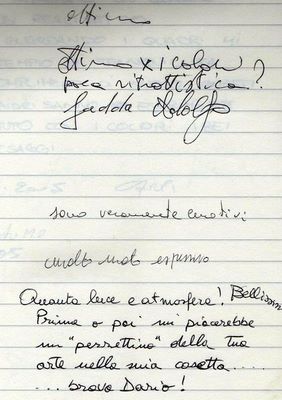 ottimo
Ottimo x i colori
poca ritrattistica?
Gadda Adolfo
sono veramente emotivi
molto molto espressivo
Quanta luce e atmosfera! Bellissimi
Prima o poi mi piacerebbe
un "pezzettino" della tua
arte nella mia casetta.....
.... bravo Dario!